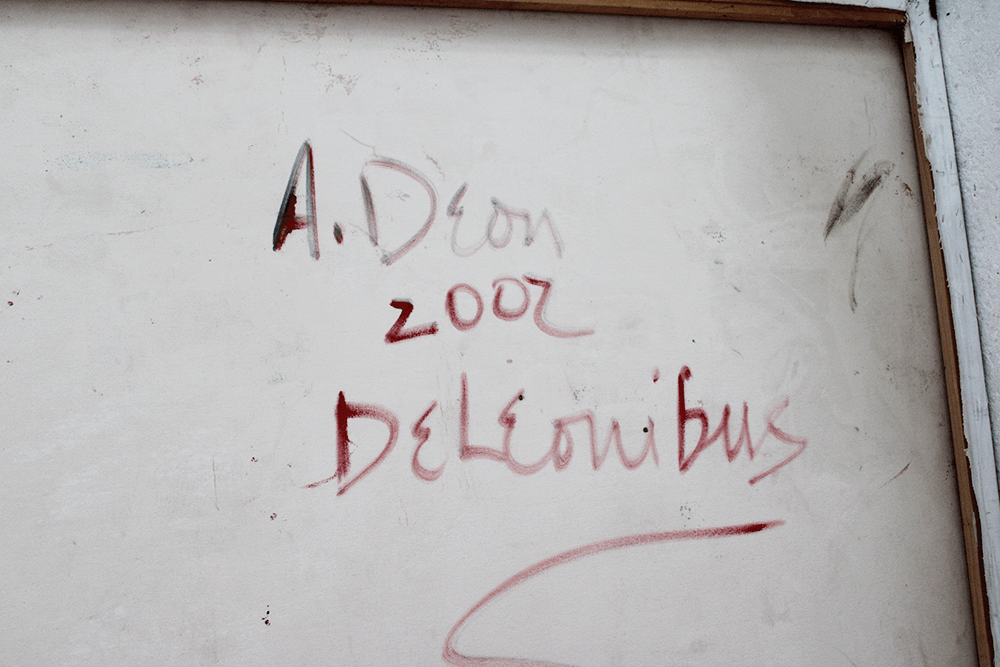 A. Deon
2002
DeLeonibus